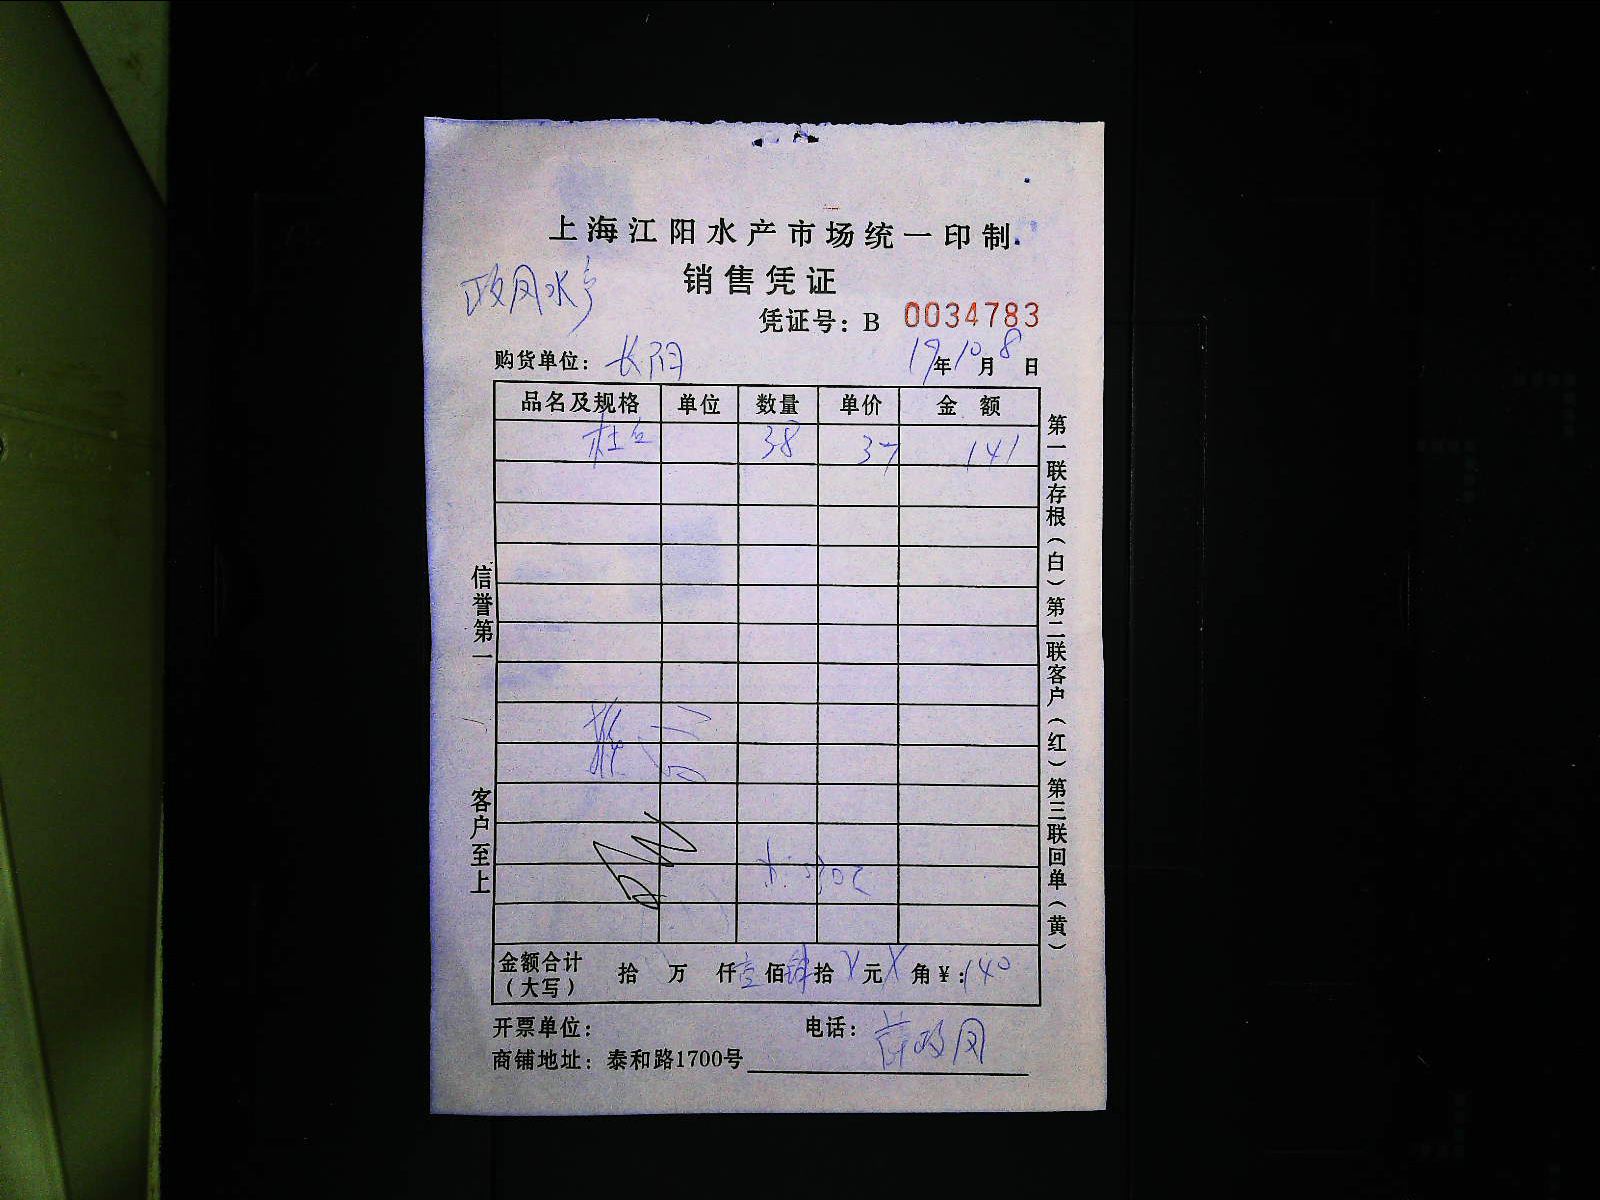 上海江阳水产市场统一印制
销售凭证
政风水产
凭证号：B 0034783
购货单位：长阳 19年10月8日
品名及规格 单位 数量 单价 金额
38 37 141
信誉第一 客户至上
第一联存根（白）第二联客户（红）第三联回单（黄）
金额合计（大写） 拾 万 仟壹佰肆拾 元 角￥：140
开票单位： 电话：薛政风
商铺地址：泰和路1700号